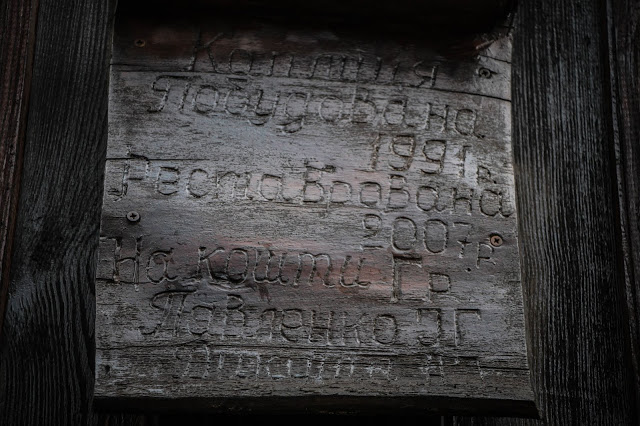 Каплиця
Побудована
1991р.
Реставрована
2007р.
На кошти Гр
Павленко І Г